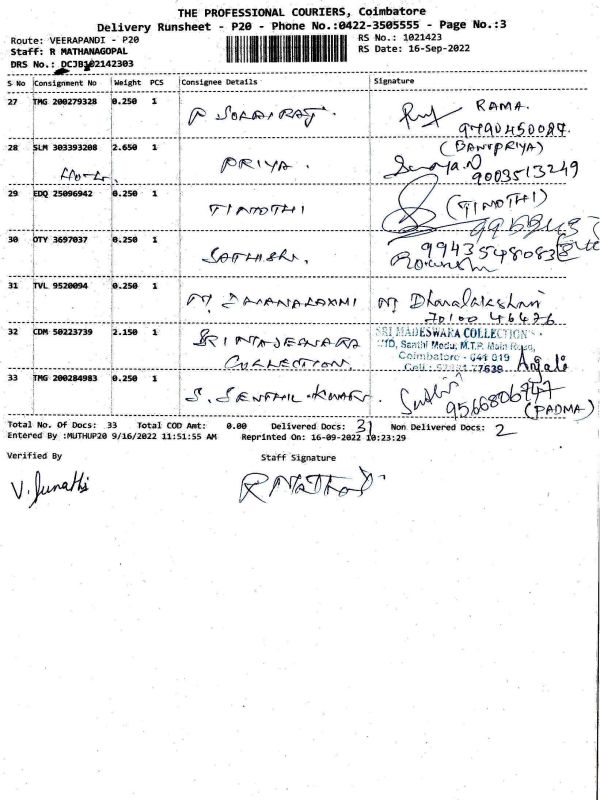 THE PROFESSIONAL COURIERS, Coimbatore
Delivery Runsheet - P20 - Phone No.:0422-3505555 - Page No.:3
Route: VEERAPANDI - P20
RS No.: 1021423
Staff: R MATHANAGOPAL
RS Date: 16-Sep-2022
DRS No.: DCJB102142303
S No Consignment No Weight PCS Consignee Details Signature
27 TMG 200279328 0.250 1 RAMA.
9790450087.
28 SLM 303393208 2.650 1 PRIYA. (BANUPRIYA)
9003513249
29 EDQ 25096942 0.250 1 TIMOTHI (TIMOTHI)
30 OTY 3697037 0.250 1 SATHISH.
31 TVL 9520094 0.250 1 M. DHANALAXMI M. Dhanalakshmi
70100 46476
32 CDM 50223739 2.150 1 SRI MADESWARA SRI MADESWARA COLLECTIONS
COLLECTION. Santhi Medu, M.T.P. Main Road,
Coimbatore - 641 019 Anjali
33 TMG 200284983 0.250 1 S. SENTHIL KUMAR.
9566806747
(PADMA)
Total No. Of Docs: 33 Total COD Amt: 0.00 Delivered Docs: 31 Non Delivered Docs: 2
Entered By :MUTHUP20 9/16/2022 11:51:55 AM Reprinted On: 16-09-2022 10:23:29
Verified By Staff Signature